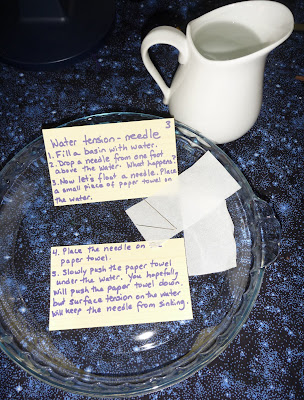 3
Water tension - needle
1. Fill a basin with water.
2. Drop a needle from one foot
above the water. What happens?
3. Now let's float a needle. Place
a small piece of paper towel on
the water.
4. Place the needle on
paper towel.
5. Slowly push the paper towel
under the water. You hopefully
will push the paper towel down,
but surface tension on the water
will keep the needle from sinking.